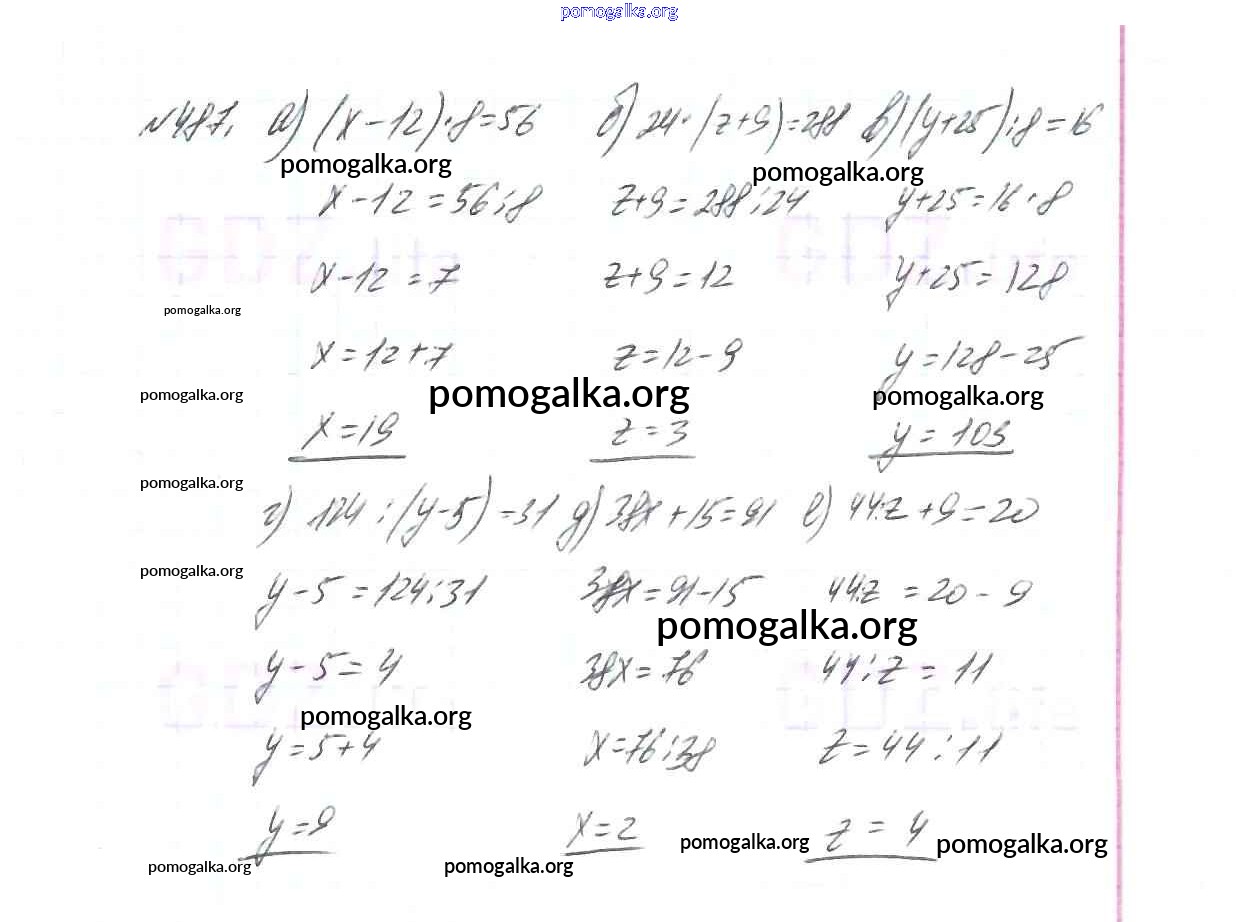 pomogalka.org
№487. а) (x-12)·8=56 б) 24·(z+9)=288 в) (y+25):8=16
pomogalka.org pomogalka.org
x-12=56:8 z+9=288:24 y+25=16·8
x-12=7 z+9=12 y+25=128
pomogalka.org
x=12+7 z=12-9 y=128-25
pomogalka.org pomogalka.org pomogalka.org
x=19 z=3 y=103
pomogalka.org
г) 124:(y-5)=31 д) 38x+15=91 е) 44:z+9=20
pomogalka.org
y-5=124:31 38x=91-15 44:z=20-9
pomogalka.org
y-5=4 38x=76 44:z=11
pomogalka.org
y=5+4 x=76:38 z=44:11
y=9 x=2 z=4
pomogalka.org pomogalka.org
pomogalka.org pomogalka.org